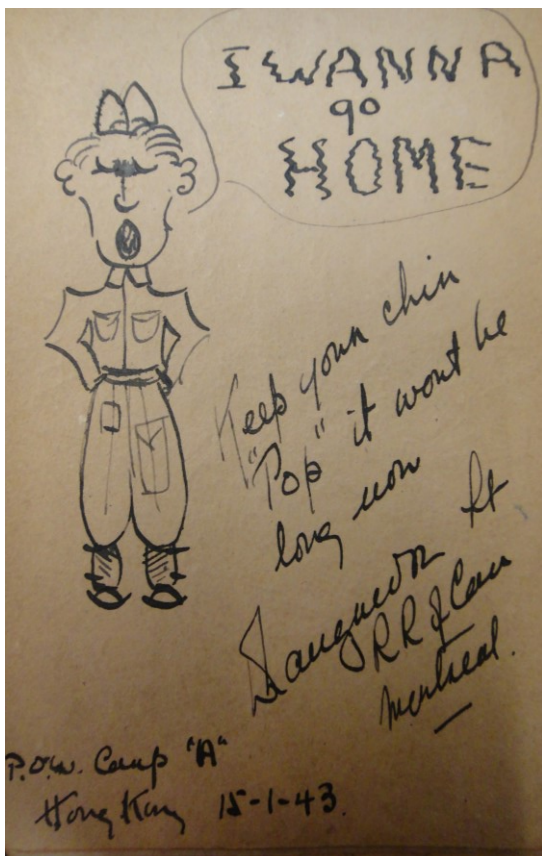 I WANNA
go
HOME
Keep your chin
"Pop" it wont be
long now
Lt
RR of Can
Montreal.
P.O.W. Camp "A"
Hong Kong 15-1-43